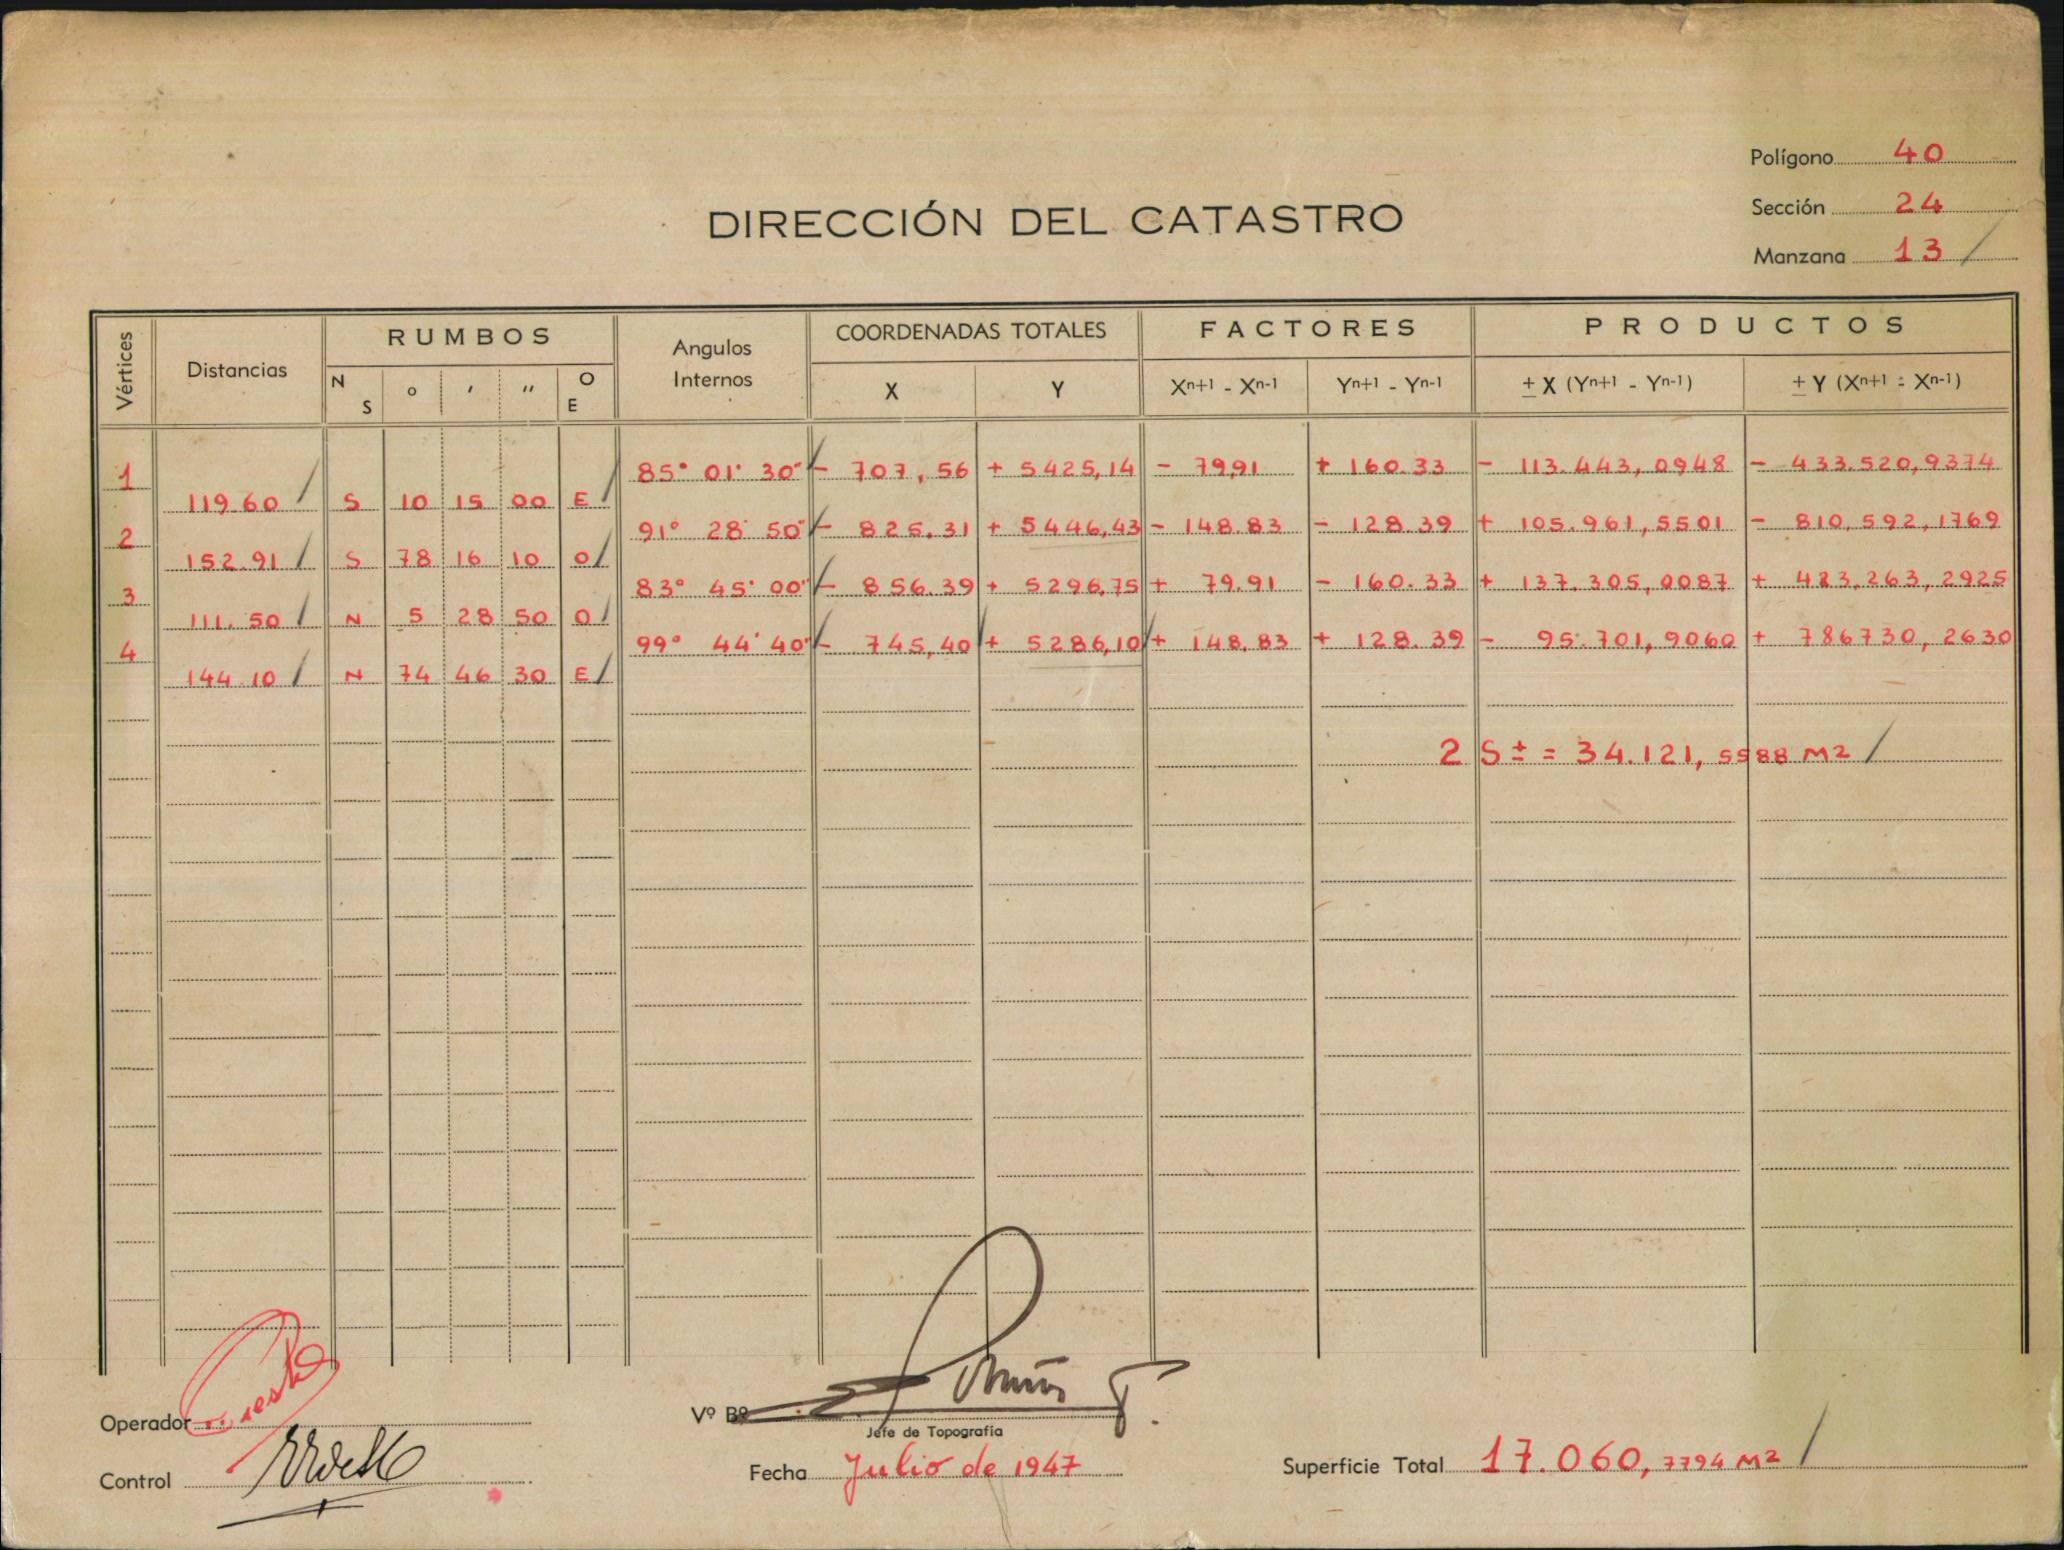 Polígono 40
Sección 24
Manzana 13 /
DIRECCIÓN DEL CATASTRO
Vértices Distancias RUMBOS N S ° ' " O E Angulos Internos COORDENADAS TOTALES X Y FACTORES Xn+1 - Xn-1 Yn+1 - Yn-1 PRODUCTOS ± X (Yn+1 - Yn-1) ± Y (Xn+1 - Xn-1)
1 85° 01' 30" - 707,56 + 5425,14 - 79,91 + 160.33 - 113.443,0948 - 433.520,9374
119.60 S 10 15 00 E
2 91° 28' 50" - 825.31 + 5446,43 - 148.83 - 128.39 + 105.961,5501 - 810,592,1769
152.91 S 78 16 10 O
3 83° 45' 00" - 856.39 + 5296,75 + 79.91 - 160.33 + 137.305,0087 + 423.263,2925
111.50 N 5 28 50 O
4 99° 44' 40" - 745,40 + 5286,10 + 148,83 + 128.39 - 95.701,9060 + 786730,2630
144.10 N 74 46 30 E
2 S ± = 34.121,5588 M2 /
Operador
Vº Bº
Jefe de Topografía
Control
Fecha Julio de 1947
Superficie Total 17.060,7794 M2 /